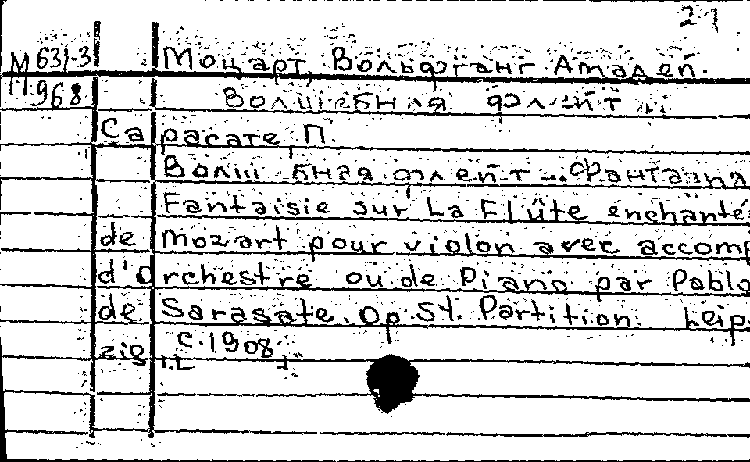 21
М 631-3 Моцарт, Вольфганг Амадей.
М 968 Волшебная флейта
Сарасате, П.
Волшебная флейта. Фантазия
Fantaisie sur La Flûte enchanté
de Mozart pour violon avec accomp
d'Orchestre ou de Piano par Pablo
de Sarasate. Op. 54. Partition. Leip-
zig, c. 1908